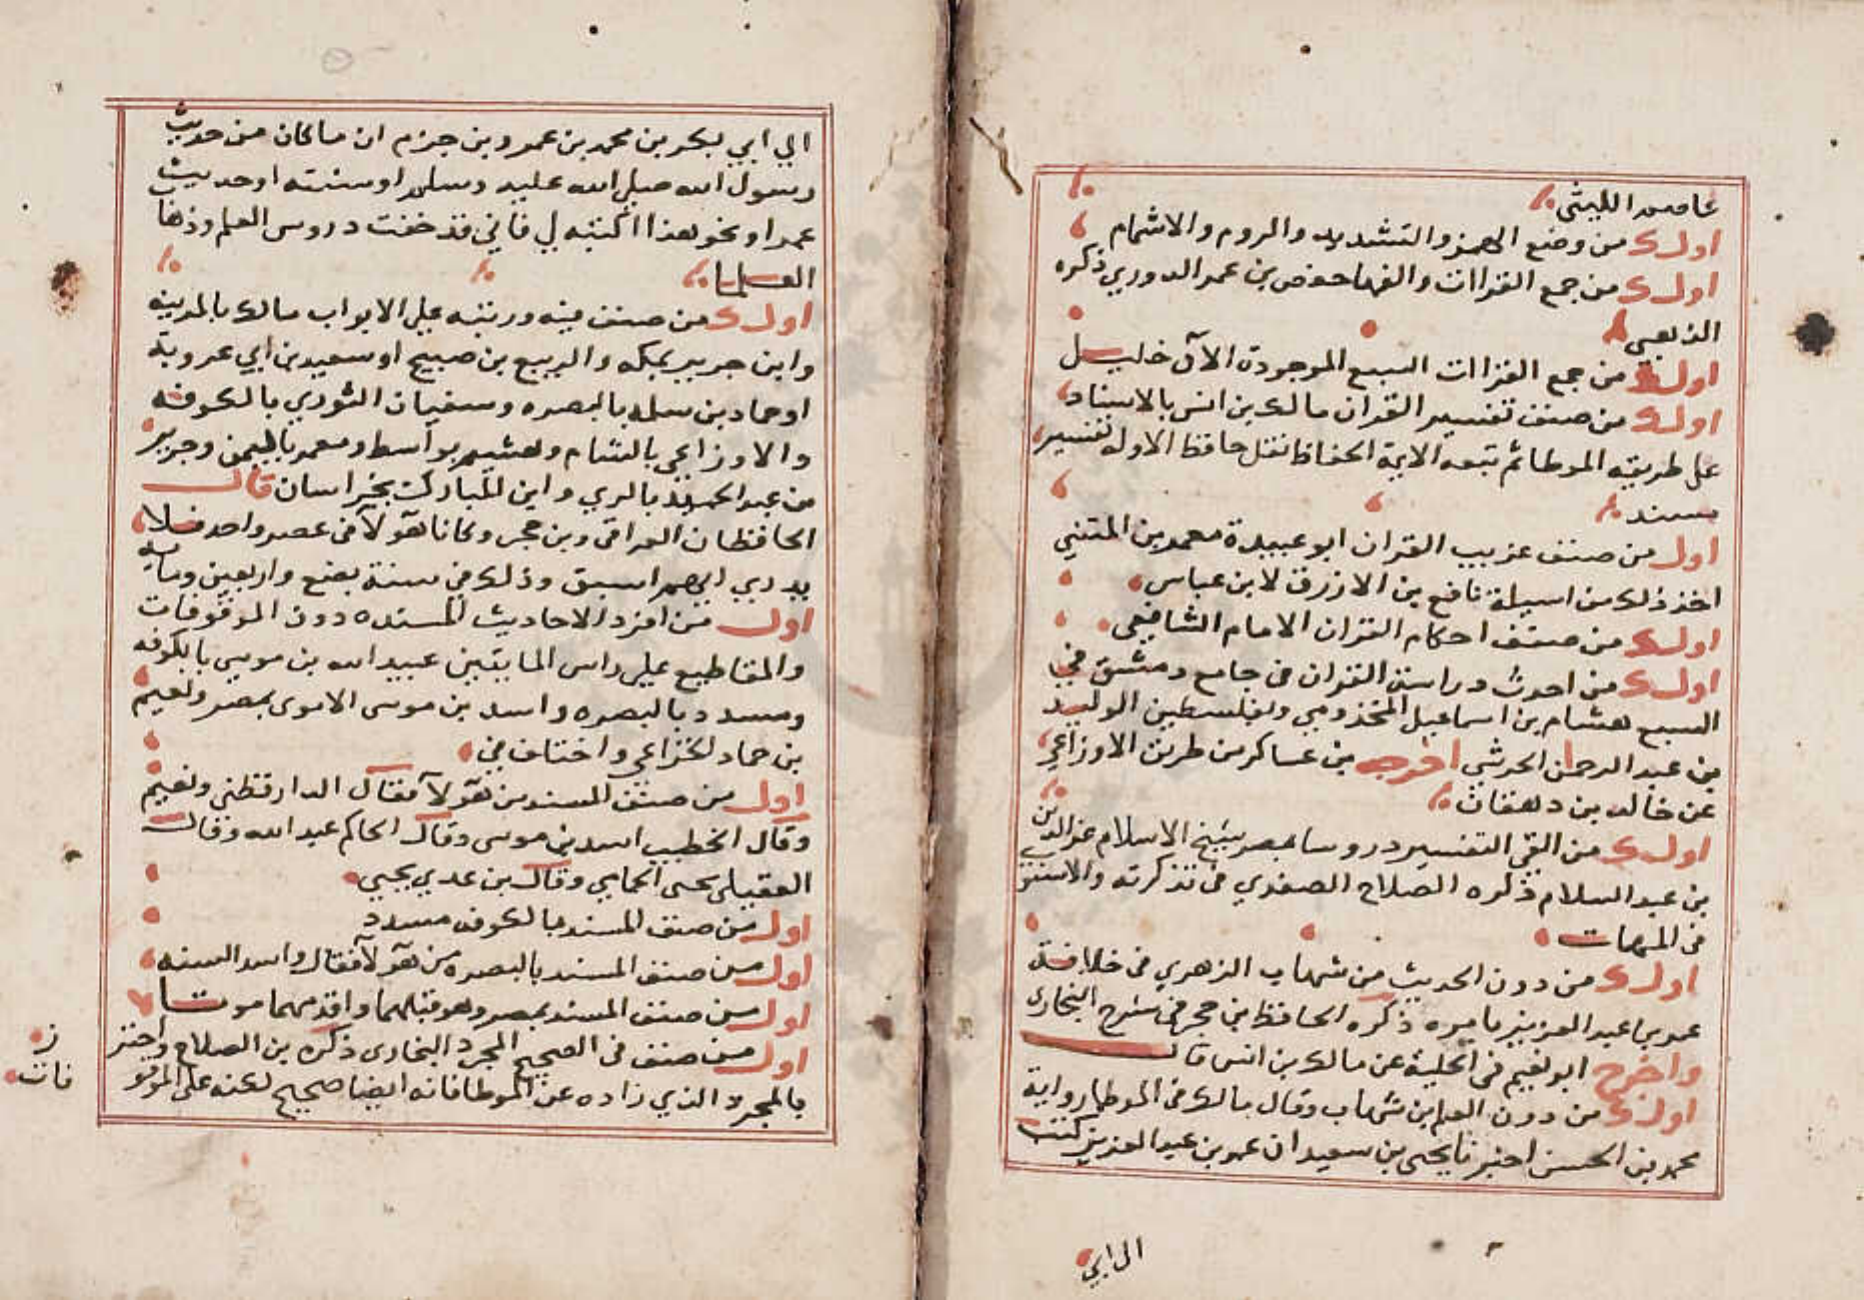 عاصم الليثي
اول من وضع الهمز والتشديد والروم والاشمام
اول من جمع القراات والفها حفص بن عمر الدوري ذكره
الذهبي
اول من جمع القراات السبع الموجودة الآن خليل
اول من صنف تفسير القران مالك بن انس بالاسناد
على طريقه الموطا ثم تبعه الايمة الحفاظ نقل حافظ الاوله تفسير
بسند
اول من صنف غريب القران ابو عبيدة معمر بن المثنى
اخذ ذلك من اسيلة نافع بن الازرق لابن عباس
اول من صنف احكام القران الامام الشافعي
اول من احدث دراسة القران في جامع دمشق في
السبع هشام بن اسماعيل المخزومي وبفلسطين الوليد
بن عبد الرحمن الحرشي اخرجه بن عساكر من طريق الاوزاعي
عن خالد بن دهقان
اول من القي التفسير دروسا بمصر شيخ الاسلام عز الدين
بن عبد السلام ذكره الصلاح الصفدي في تذكرته والاسنوي
في المهمات
اول من دون الحديث من شهاب الزهري في خلافة
عمر بن عبد العزيز بامره ذكره الحافظ بن حجر في شرح البخاري
واخرج ابو نعيم في الحلية عن مالك بن انس قال
اول من دون العلم بن شهاب وقال مالك في الموطا رواية
محمد بن الحسن اخبرنا يحيى بن سعيد ان عمر بن عبد العزيز كتب
الى ابي
الي ابي بكر بن محمد بن عمرو بن حزم ان ما كان من حديث
رسول الله صلى الله عليه وسلم او سنته او حديث
عمر او نحو هذا اكتبه لي فاني قد خفت دروس العلم وذهاب
العلما
اول من صنف فيه ورتبه على الابواب مالك بالمدينة
وابن جرير بمكه والربيع بن صبيح او سعيد بن ابي عروبة
او حماد بن سلمه بالبصره وسفيان الثوري بالكوفه
والاوزاعي بالشام وهشيم بواسط ومعمر باليمن وجرير
من عبد الحميد بالري وابن المبارك بخراسان قال
الحافظان العراقي وبن حجر وكانا هولآ في عصر واحد فلا
يدري ايهم اسبق وذلك في سنة بضع واربعين وماية
اول من افرد الاحاديث المسنده دون الموقوفات
والمقاطيع على راس المايتين عبيد الله بن موسى بالكوفه
ومسدد بالبصره واسد بن موسى الاموى بمصر ونعيم
بن حماد الخزاعي واختلف في
اول من صنف المسند من هولآ فقال الدارقطني ونعيم
وقال الخطيب اسد بن موسى وقال الحاكم عبد الله وقال
العقيلي يحيى الحماني وقال بن عدي يحيى
اول من صنف المسند بالكوفه مسدد
اول من صنف المسند بالبصره من هولآ فقال واسد السنه
اول من صنف المسند بمصر وهو قبلهما واقدمهما موتا
اول من صنف في الصحيح المجرد البخارى ذكره بن الصلاح واحترز
بالمجرد الذي زاده عن الموطا فانه ايضا صحيح لكنه على الموقو
فات